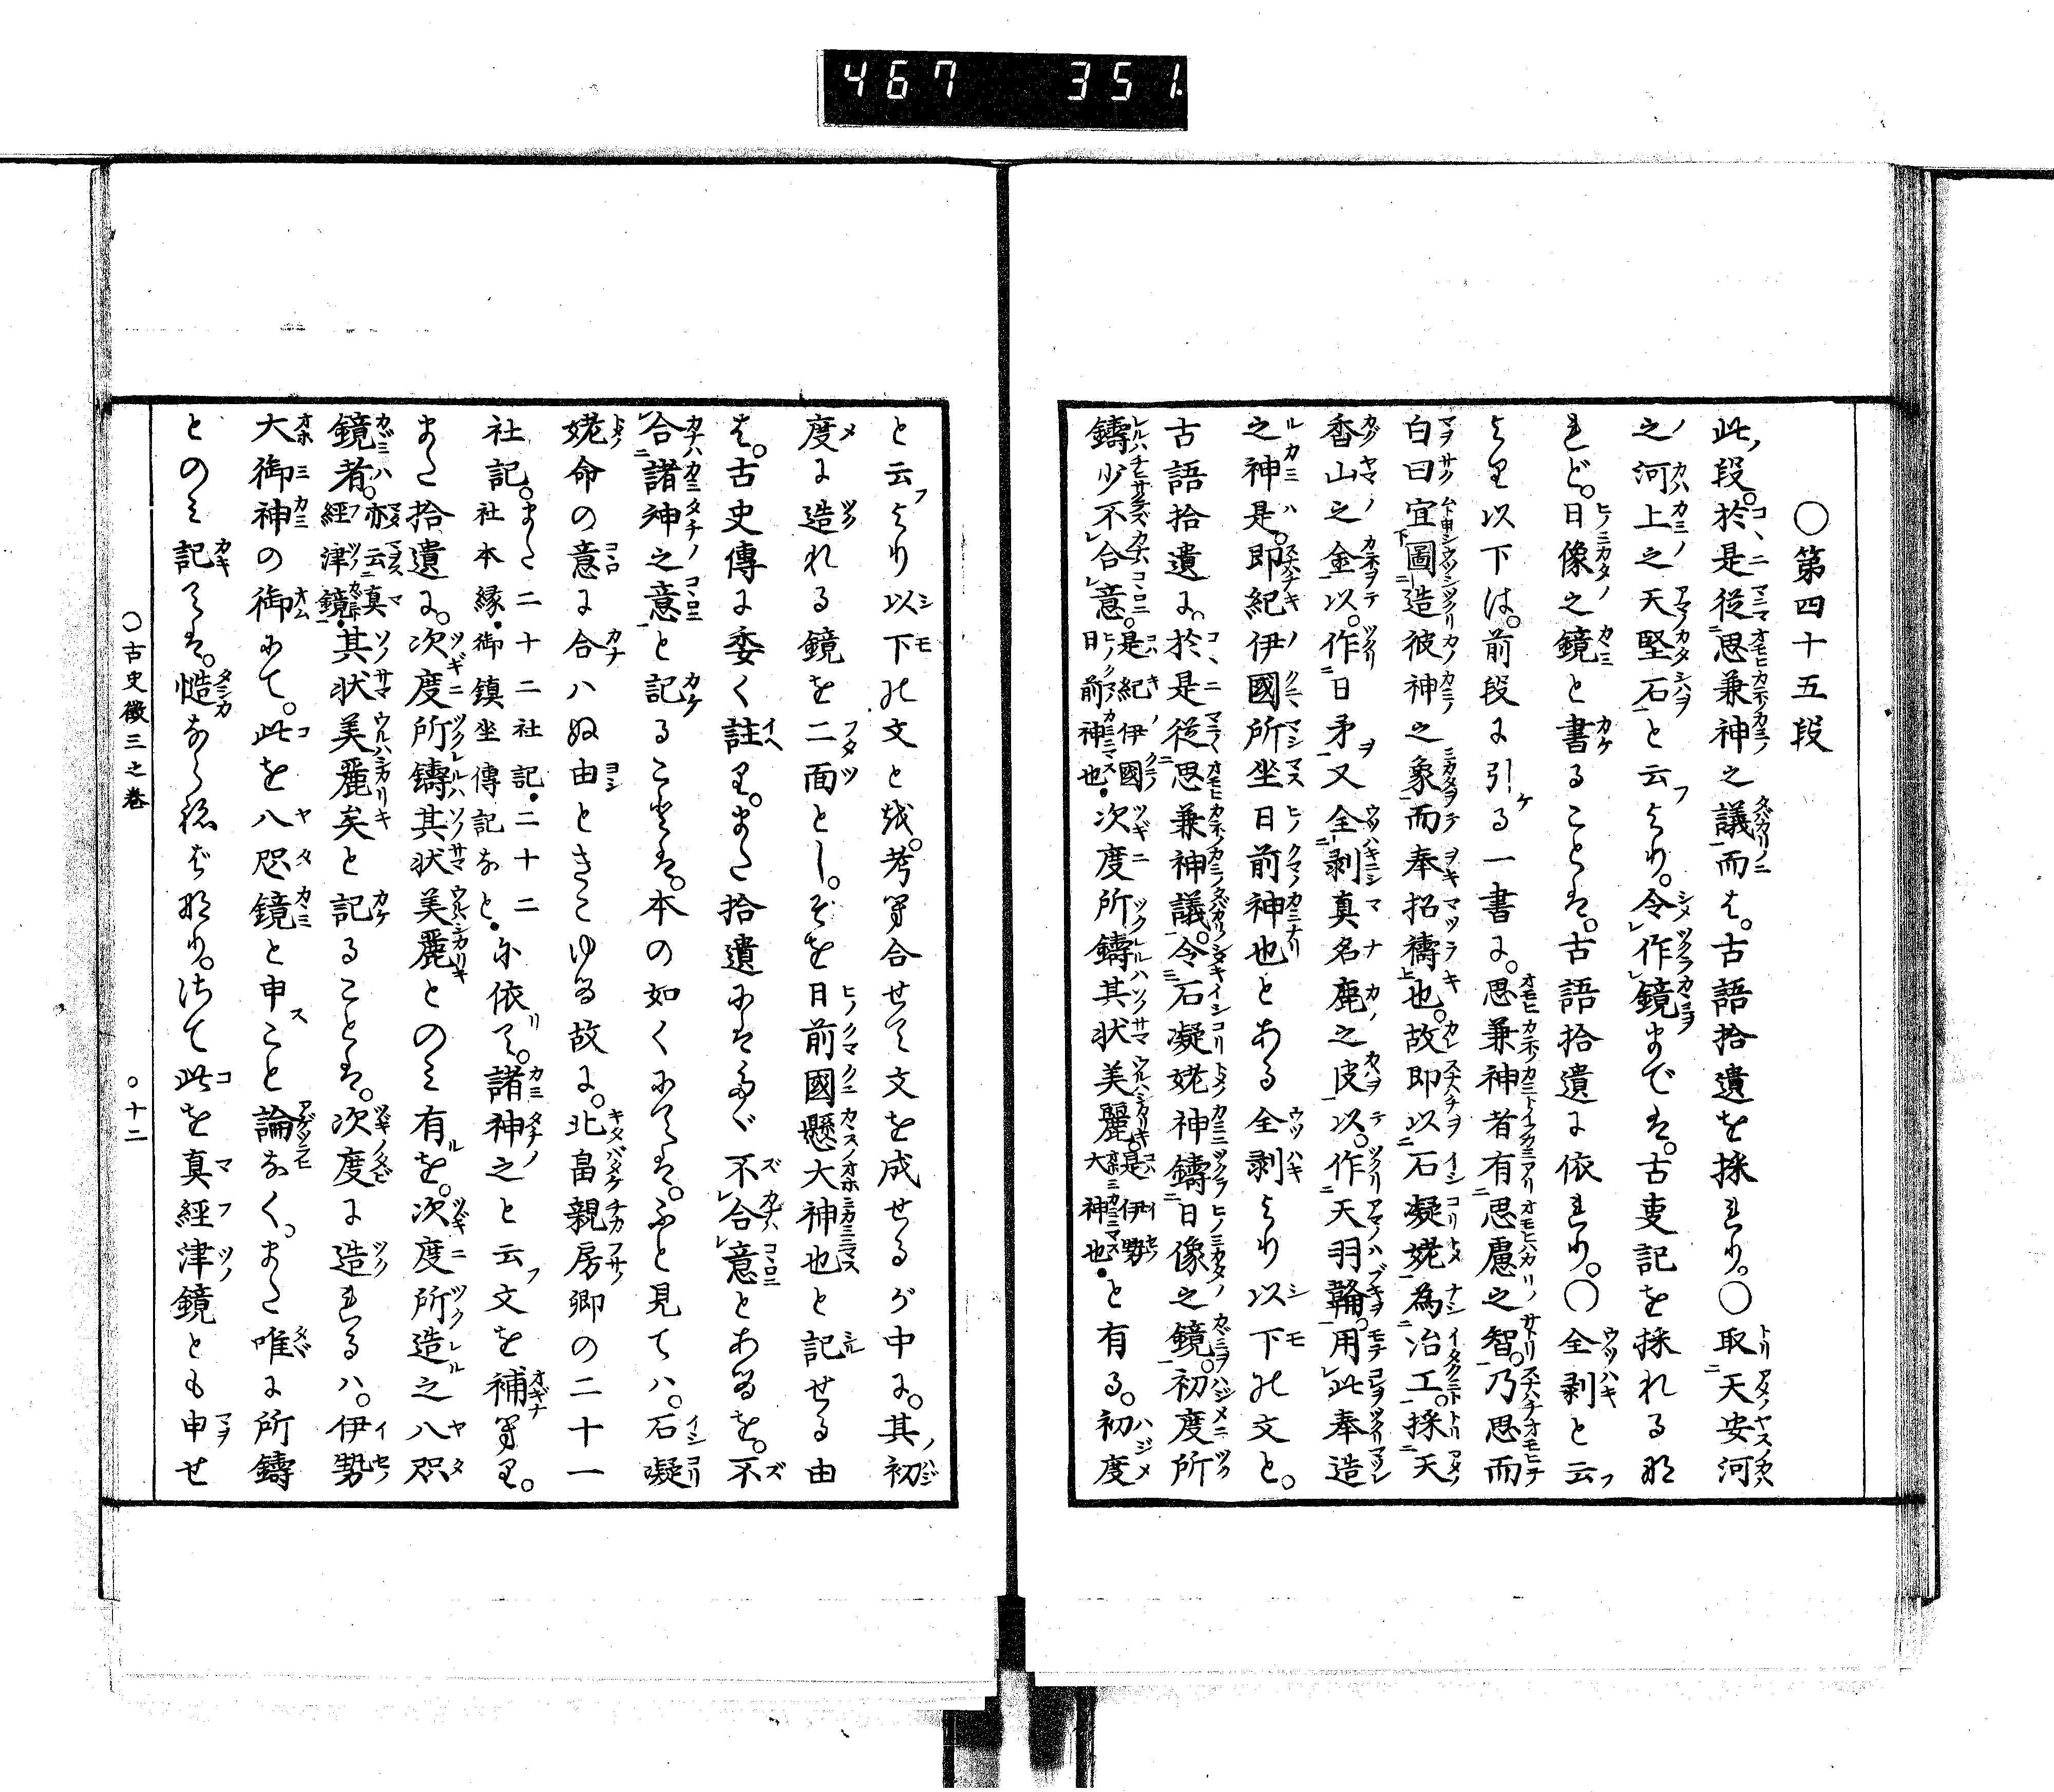 467 351
○第四十五段
此段。於是從思兼神之議而は。古語拾遺を採れり。○取天安河
之河上之天堅石と云より。令作鏡までは。古事記を採れるなれ
れど。日像之鏡と書ることは。古語拾遺に依れり。○全剥と云
より以下は。前段に引る一書に。思兼神者有思慮之智。乃思而
白曰宜圖造彼神之象而奉招禱也。故即以石凝姥為冶工。採天
香山之金以。作日矛。又全剥真名鹿之皮以。作天羽鞴。用此奉造
之神是。即紀伊國所坐日前神也とある全剥より以下の文と。
古語拾遺に。於是從思兼神議。令石凝姥神鑄日像之鏡。初度所
鑄少不合意。是紀伊國日前神也・次度所鑄其状美麗是伊勢大神也・と有る。初度
と云より以下の文とを。考へ合せて文を成せるが中に。其初
度に造れる鏡を二面とし。そを日前國懸大神也と記せる由
は。古史傳に委く註へり。また拾遺にはたゞ不合意とあるを。不
合諸神之意と記ることは。本の如くにては。ふと見ては。石凝
姥命の意に合はぬ由ときこゆる故に。北畠親房卿の二十一
社記。また二十二社記・二十二社本縁・御鎮坐傳記など・に依て。諸神之と云文を補へり。
また拾遺に。次度所鑄其状美麗とのみ有を。次度所造之八咫
鏡者。亦云真經津鏡・其状美麗矣と記ることは。次度に造れるは。伊勢
大御神の御にて。此を八咫鏡と申こと論なく。また唯に所鑄
とのみ記ては。慥ならねばなり。さて此を真經津鏡とも申せ
○古史徴三之巻 ○十二